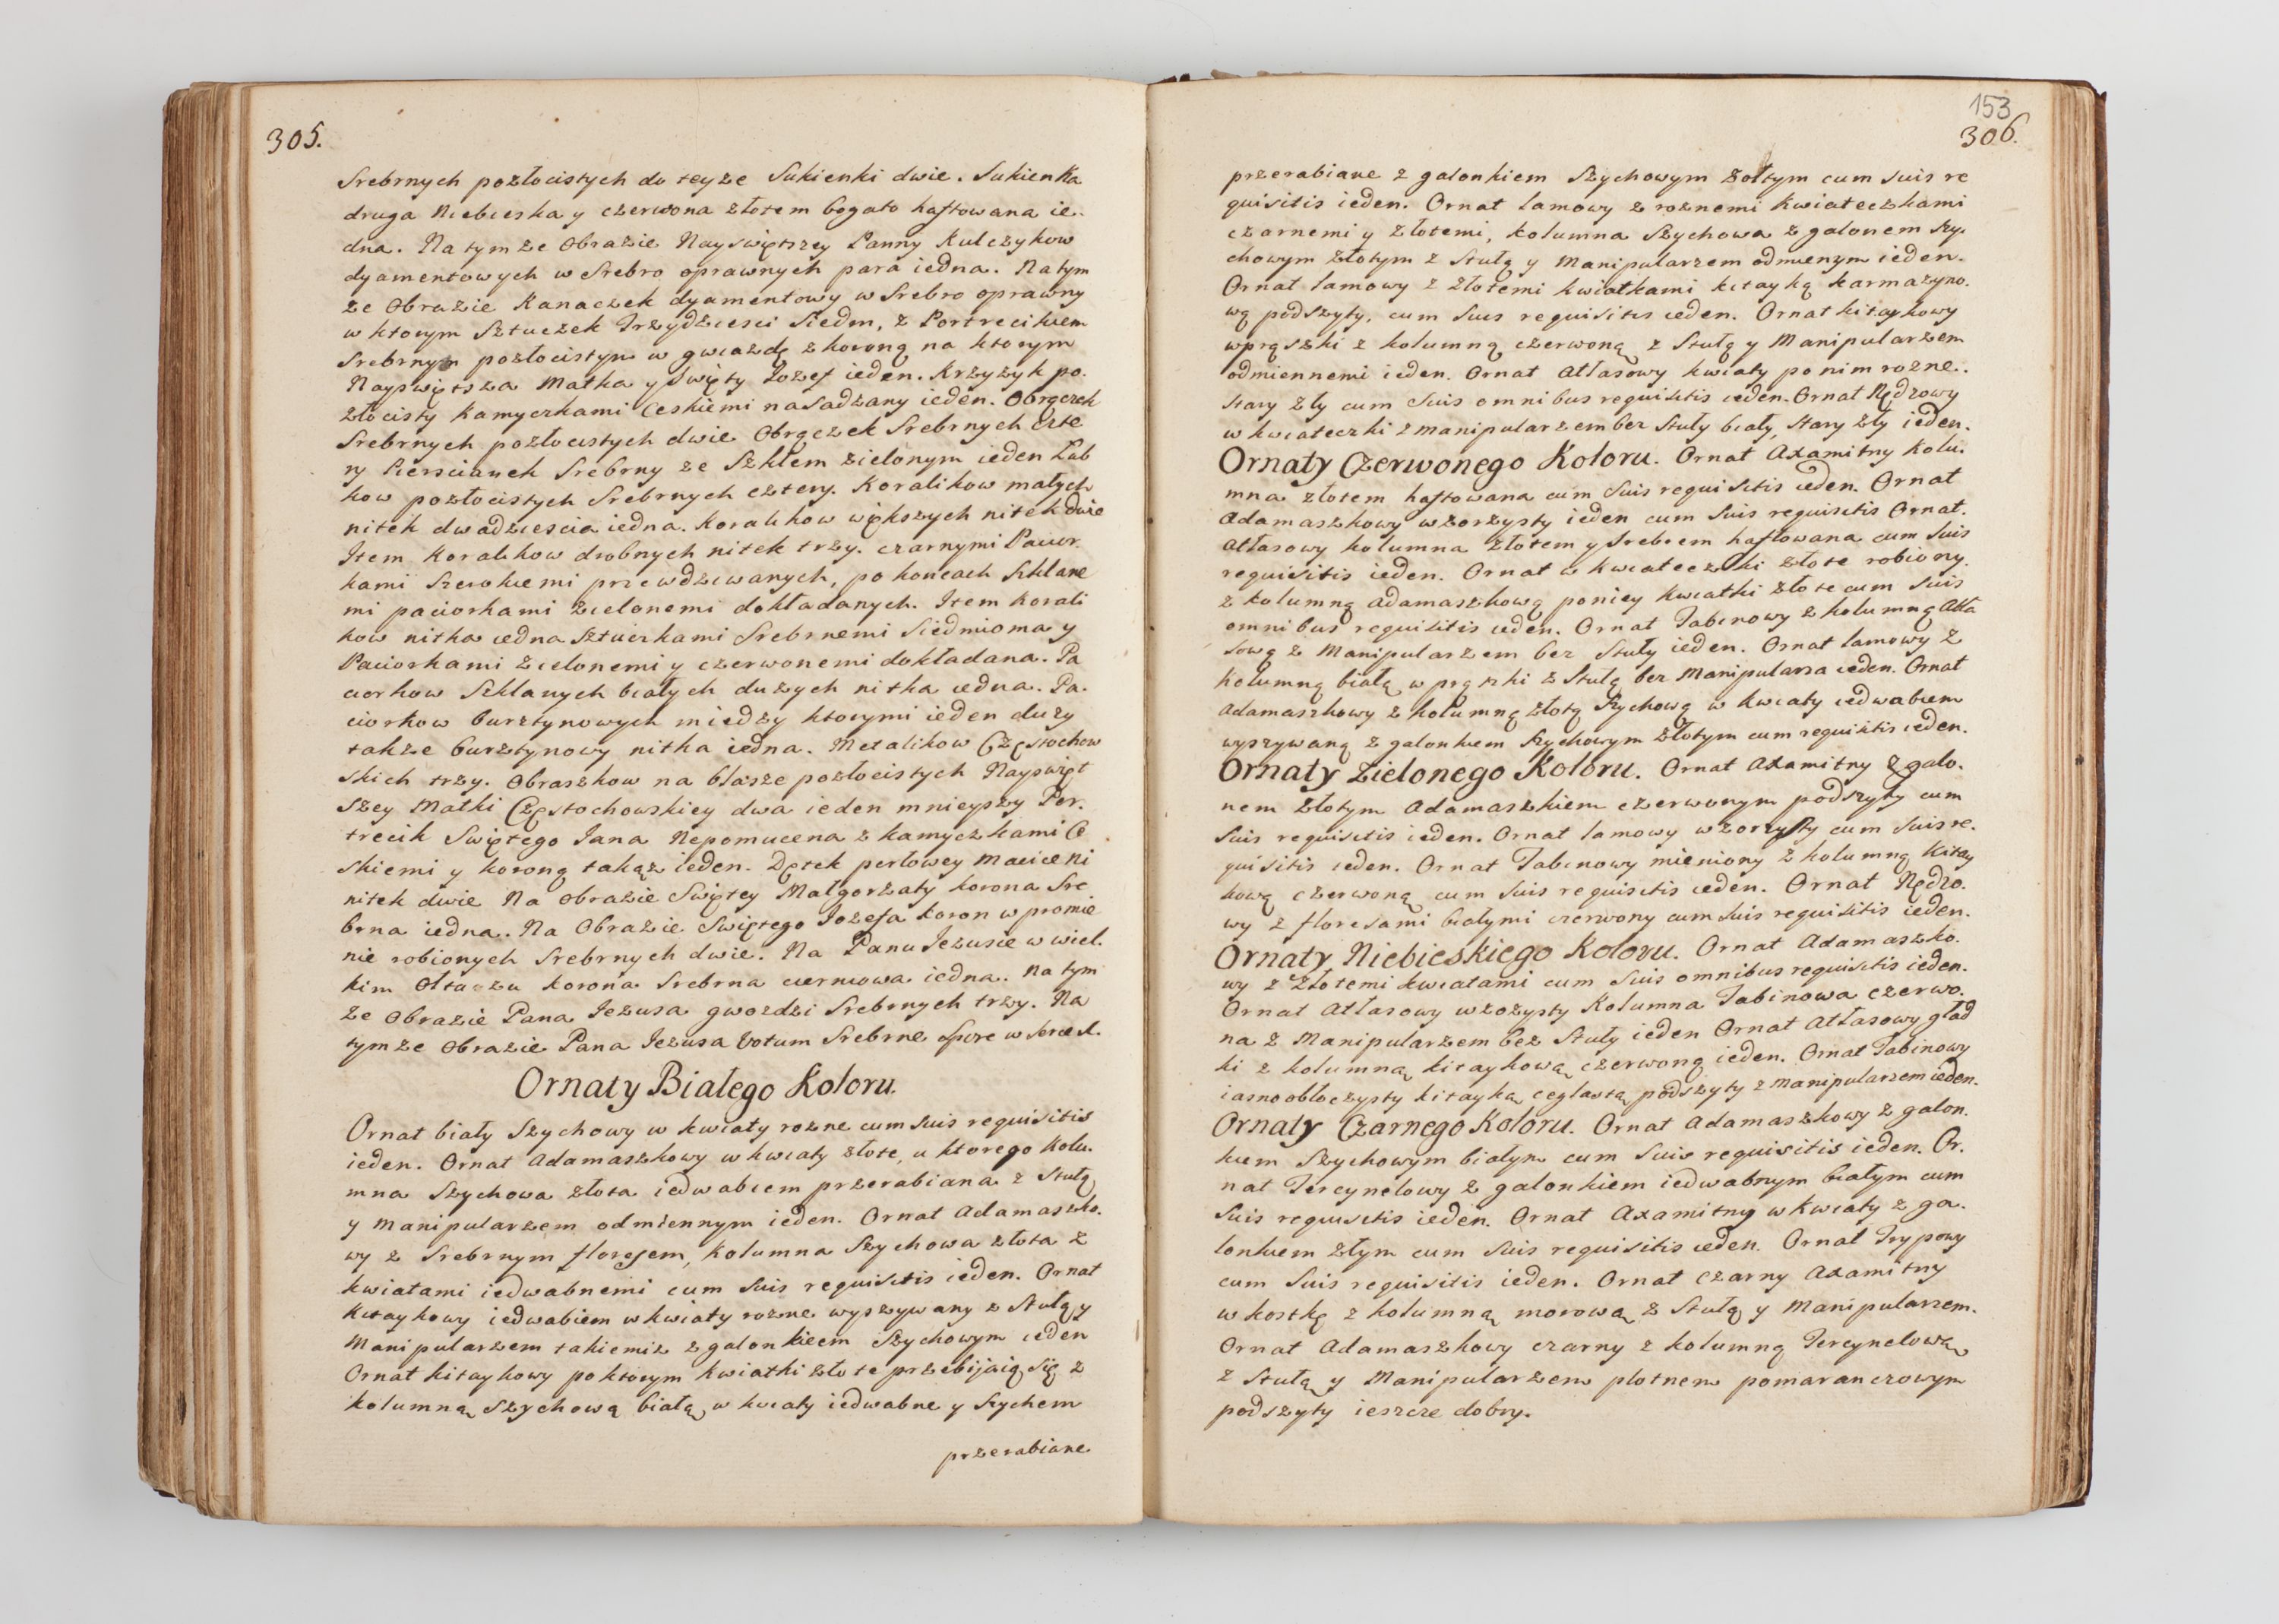 305.
Srebrnych pozłocistych do teyze Sukienki dwie. Sukienka
druga Niebieska y czerwona złotem bogato haftowana ie..
dna. Na tymze Obrazie Nayswiętszey Panny Kulczykow
dyamentowych w Srebro oprawnych para iedna. Na tym
ze Obrazie Kanaczek dyamentowy w Srebro oprawny
w ktorym Sztuczek Trzydziesci Siedm, z Portrecikiem
Srebrnym pozłocistym w gwiazdę z koroną na ktorym
Nayswiętsza Matka y Swięty Jozef ieden. Krzyzyk po.
złocisty Kamyczkami Ceskiemi nasadzany ieden. Obrączek
Srebrnych pozłocistych dwie Obrączek Srebrnych czte
ry Piersciank Srebrny ze Szkłem zielonym ieden Łab
kow pozłocistych Srebrnych cztery. Koralikow małych
nitek dwadziescia iedna. Koralikow większych nitek dwie
Item Koralikow drobnych nitek trzy. czarnymi Pacior
kami Szerokiemi przewdziewanych, po koncach Szklane
mi paciorkami zielonemi dokładanych. Item Korali
kow nitka iedna Sztuczkami Srebrnemi Siedmioma y
Paciorkami zielonemi y czerwonemi dokładana. Pa
ciorkow Szklanych białych duzych nitka iedna. Pa.
ciorkow bursztynowych miedzy ktorymi ieden duzy
takze bursztynowy nitka iedna. Metalikow Częstochow
skich trzy. Obraszkow na blasze pozłocistych Nayswięt
szey Matki Częstochowskiey dwa ieden mnieyszy Por.
trecik Swiętego Jana Nepomucena z kamyczkami Ce
skiemi y koroną takąz ieden. Dętek perłowey Macice Ni
nitek dwie Na Obrazie Swiętey Małgorzaty korona Sre
brna iedna. Na Obrazie Swiętego Jozefa koron w promie
nie robionych Srebrnych dwie. Na Panu Jezusie w wiel.
kim Ołtarzu korona Srebrna cierniowa iedna. Na tym
ze Obrazie Pana Jezusa gwozdzi Srebrnych trzy. Na
tymze Obrazie Pana Jezusa Votum Srebrne
Ornaty Białego Koloru.
Ornat biały Szychowy w kwiaty rozne cum suis requisitis
ieden. Ornat Adamaszkowy w kwiaty złote, u ktorego Kolu.
mna Szychowa złota iedwabiem przerabiana z Stułą
y Manipularzem odmiennym ieden. Ornat Adamaszko.
wy z Srebrnym floresem, Kolumna Szychowa złota z
kwiatami iedwabnemi cum Suis requisitis ieden. Ornat
Kitaykowy iedwabiem w kwiaty rozne wyszywany z Stułą y
Manipularzem takiemiz z galonkiem Szychowym ieden
Ornat kitaykowy po ktorym kwiatki złote przebijaią się z
kolumną Szychową białą w kwiaty iedwabne y Szychem
przerabiane
153
306.
przerabiane z galonkiem Szychowym zołtym cum suis re
quisitis ieden. Ornat lamowy z roznemi kwiateczkami
czarnemi y złotemi, kolumna Szychowa z galonem Szy.
chowym złotym z Stułą y Manipularzem odmienym ieden.
Ornat lamowy z złotemi kwiatkami kitayką karmazyno.
wą podszyty, cum suis requisitis ieden. Ornat kitaykowy
w prązki z kolumną czerwoną z Stułą y Manipularzem
odmiennemi ieden. Ornat Atłasowy kwiaty po nim rozne.
stary zły cum suis omnibus requisitis ieden. Ornat Nędzowy
w kwiateczki z manipularzem bez Stuły biały, stary zły ieden.
Ornaty Czerwonego Koloru. Ornat Axamitny Kolu.
mna złotem haftowana cum suis requisitis ieden. Ornat
Adamaszkowy wzorzysty ieden cum Suis requisitis Ornat.
Atłasowy kolumna złotem y Srebrem haftowana cum suis
requisitis ieden. Ornat w kwiateczki złote robiony.
z kolumną adamaszkową poniey kwiatki złote cum suis
omnibus requisitis ieden. Ornat Tabinowy z kolumną Atła
sową z Manipularzem bez Stuły ieden. Ornat lamowy z
Kolumną białą w prązki z Stułą bez Manipularza ieden. Ornat
Adamaszkowy z kolumną złotą Szychową w kwiaty iedwabiem
wyszywaną z galonkiem Szychowym złotym cum requisitis ieden.
Ornaty Zielonego Koloru. Ornat Axamitny z galo.
nem złotym Adamaszkiem czerwonym podszyty cum
Suis requisitis ieden. Ornat lamowy wzorzysty cum suis re.
quisitis ieden. Ornat Tabinowy mieniony z kolumną Kitay
kową czerwoną cum suis requisitis ieden. Ornat Nędzo.
wy z floresami białymi czerwony cum suis requisitis ieden.
Ornaty Niebieskiego Koloru. Ornat Adamaszko.
wy z złotemi kwiatami cum Suis omnibus requisitis ieden.
Ornat Atłasowy wzozysty Kolumna Tabinowa czerwo.
na z Manipularzem bez Stuły ieden Ornat Atłasowy gład
ki z kolumną kitaykową czerwoną ieden. Ornat Tabinowy
iasnoobłoczysty kitayką ceglastą podszyty z manipularzem ieden.
Ornaty Czarnego Koloru. Ornat Adamaszkowy z galon.
kiem Szychowym białym cum Suis requisitis ieden. Or.
nat Tercynelowy z galonkiem iedwabnym białym cum
Suis requisitis ieden. Ornat Axamitny w kwiaty z ga.
lonkiem złym cum suis requisitis ieden. Ornat Trypowy
cum Suis requisitis ieden. Ornat czarny Axamitny
w kostkę z kolumną morową z Stułą y Manipularzem.
Ornat Adamaszkowy czarny z kolumną Tercynelową
z Stułą y Manipularzem płotnem pomaranczowym
podszyty ieszcze dobry.